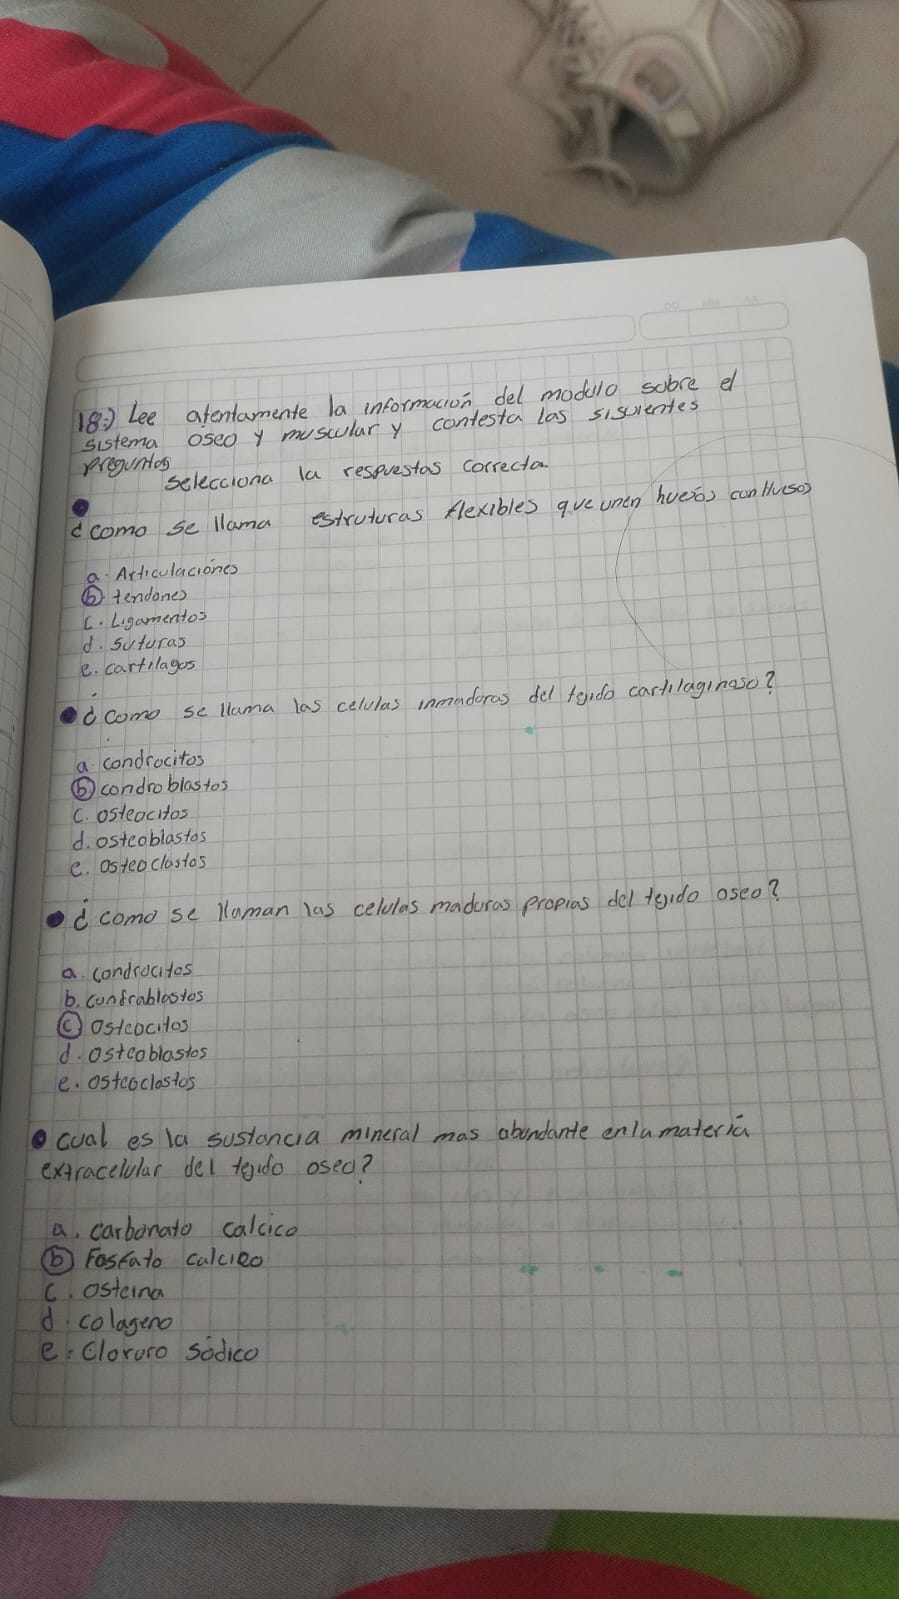 DD MM AA
18.) Lee atentamente la información del modulo sobre el
sistema oseo y muscular y contesta las siguientes
preguntas
selecciona la respuestas correcta
¿como se llama estruturas flexibles que unen huesos con Huesos
a. Articulaciones
b. tendones
c. Ligamentos
d. suturas
e. cartilagos
¿como se llama las celulas inmaduras del tejido cartilaginoso?
a. condrocitos
b. condroblastos
c. osteocitos
d. osteoblastos
e. osteoclastos
¿como se llaman las celulas maduras propias del tejido oseo?
a. condrocitos
b. confrablastos
c. osteocitos
d. osteoblastos
e. osteoclastos
cual es la sustancia mineral mas abundante en la materia
extracelular del tejido oseo?
a. carbonato calcico
b. Fosfato calcico
c. osteina
d. colageno
e. Cloruro sódico